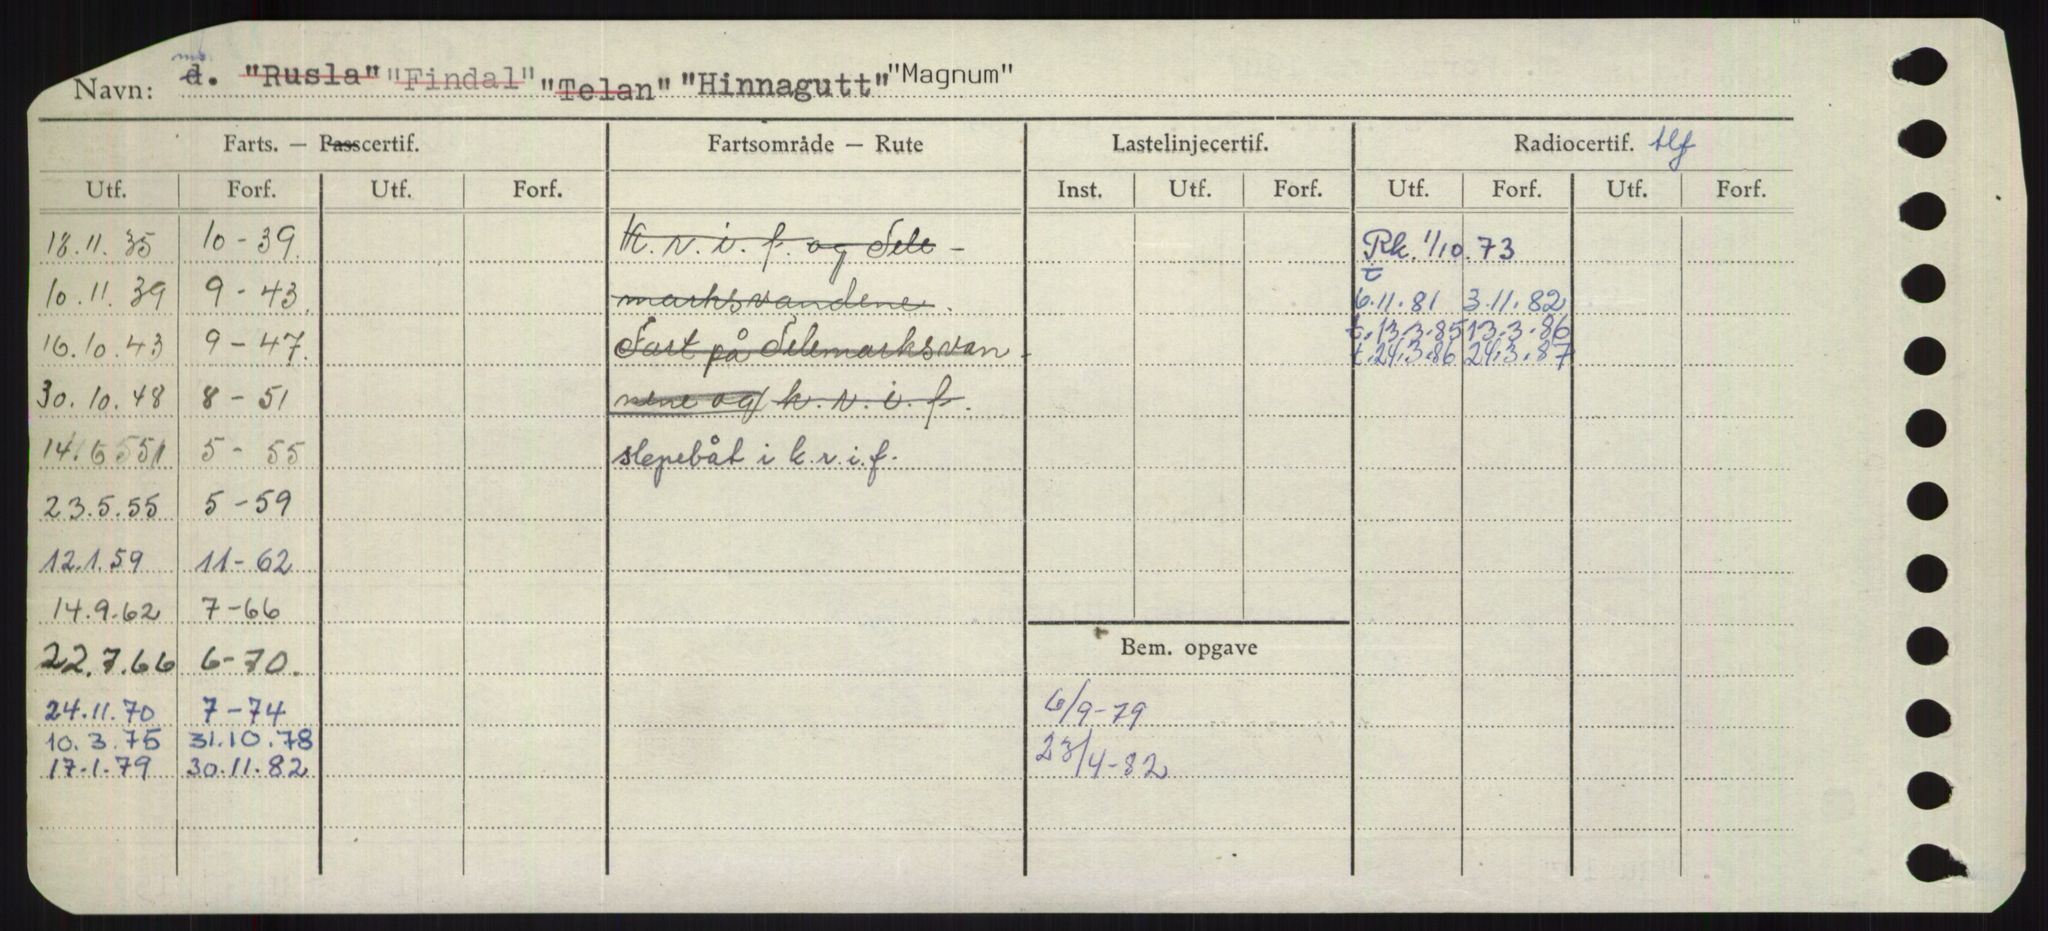 ms.
Navn: d. "Rusla" "Findal" "Telan" "Hinnagutt" "Magnum"
Farts. — Passcertif. Fartsområde — Rute Lastelinjecertif. Radiocertif. tlf
Utf. Forf. Utf. Forf. Inst. Utf. Forf. Utf. Forf. Utf. Forf.
18.11.35 10-39. K.r.i.f. og Tele- Rk. 1/10.73
t
10.11.39 9-43. marksvandene. 6.11.81 3.11.82
t.13.3.85 13.3.86
16.10.43 9-47. Fart på Telemarksvan- t.24.3.86 24.3.87
30.10.48 8-51 nene og k.r.i.f.
14.6.51 5-55 slepebåt i k.r.i.f.
23.5.55 5-59
12.1.59 11-62
14.9.62 7-66
Bem. opgave
22.7.66 6-70.
24.11.70 7-74 6/9-79
10.3.75 31.10.78
17.1.79 30.11.82 23/4-82